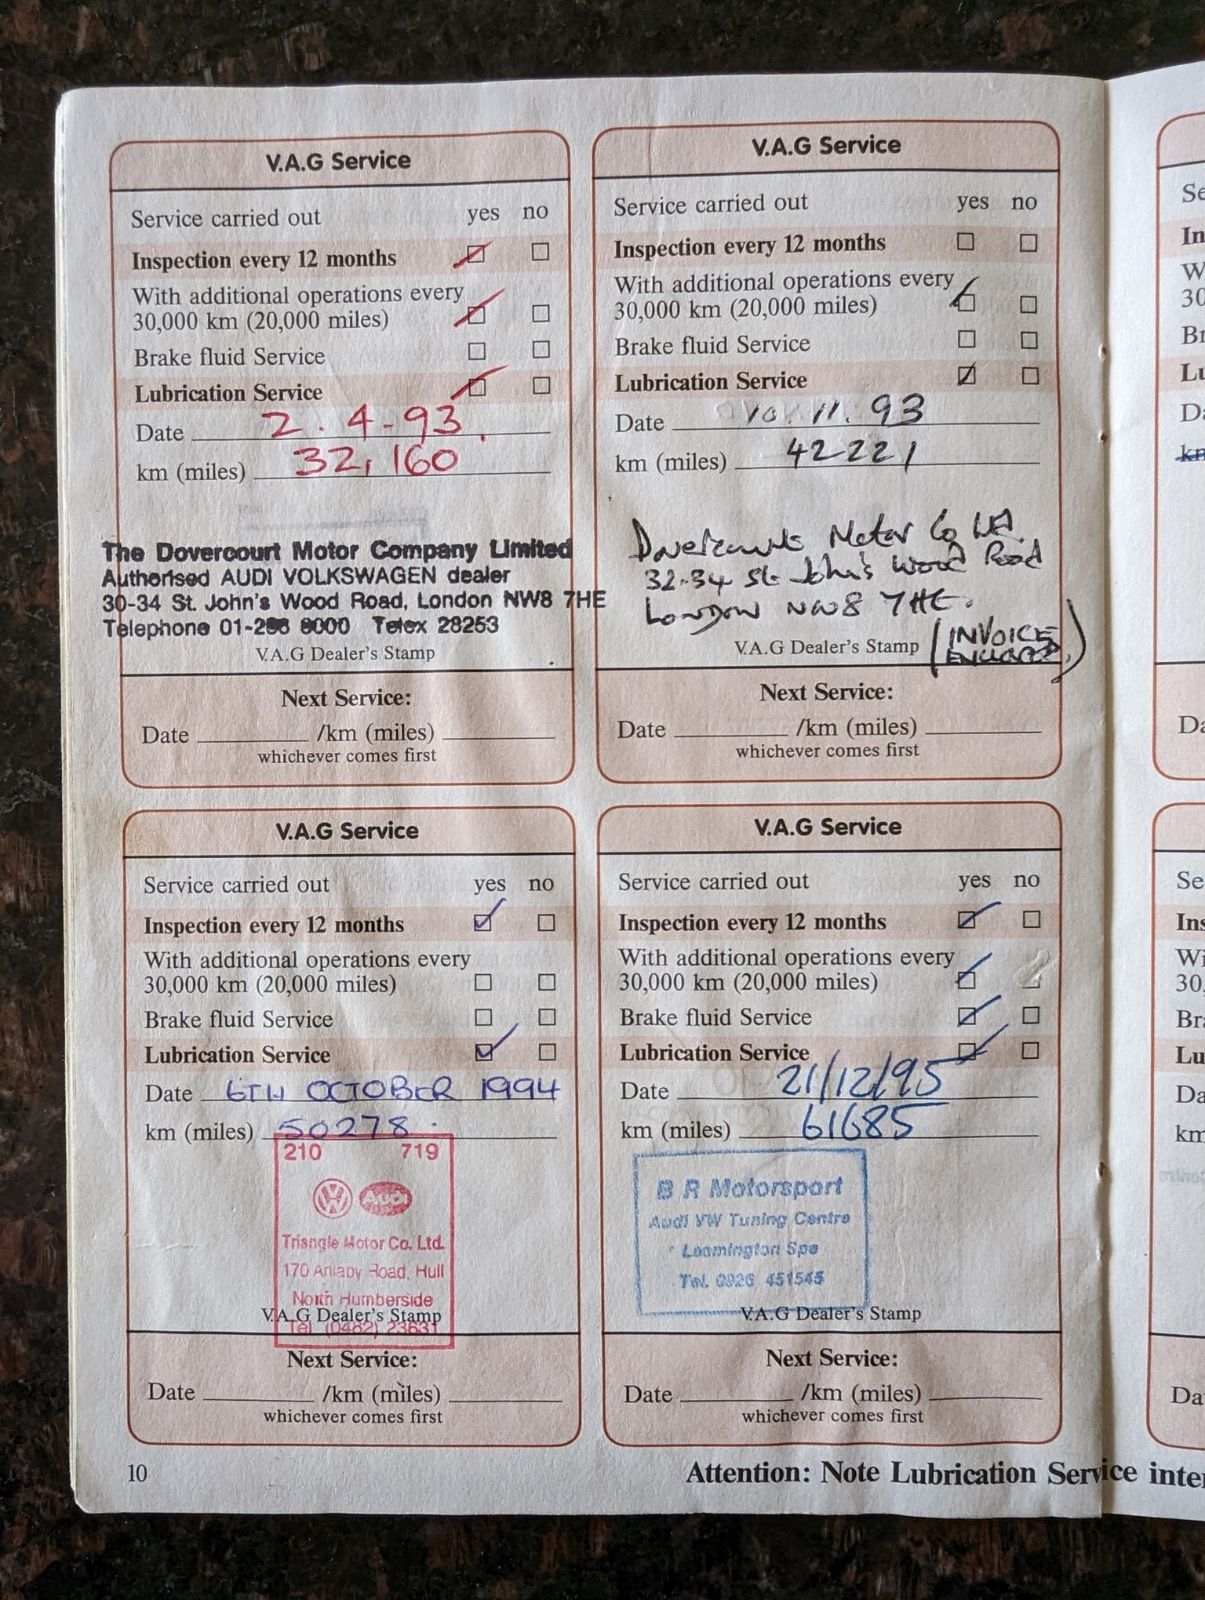 V.A.G Service
Service carried out yes no
Inspection every 12 months
With additional operations every
30,000 km (20,000 miles)
Brake fluid Service
Lubrication Service
Date 2.4-93
km (miles) 32,160
The Dovercourt Motor Company Limited
Authorised AUDI VOLKSWAGEN dealer
30-34 St. John's Wood Road, London NW8 7HE
Telephone 01-286 8000 Telex 28253
V.A.G Dealer's Stamp
Next Service:
Date /km (miles)
whichever comes first
V.A.G Service
Service carried out yes no
Inspection every 12 months
With additional operations every
30,000 km (20,000 miles)
Brake fluid Service
Lubrication Service
Date 10.11.93
km (miles) 42221
Dovercourt Motor Co Ltd.
32-34 St John's Wood Road
London NW8 7HE.
V.A.G Dealer's Stamp (INVOICE
Next Service:
Date /km (miles)
whichever comes first
V.A.G Service
Service carried out yes no
Inspection every 12 months
With additional operations every
30,000 km (20,000 miles)
Brake fluid Service
Lubrication Service
Date 6TH OCTOBER 1994
km (miles) 50278.
210 719
Audi
Triangle Motor Co. Ltd.
170 Anlaby Road, Hull
North Humberside
V.A.G Dealer's Stamp
Tel (0482) 23631
Next Service:
Date /km (miles)
whichever comes first
V.A.G Service
Service carried out yes no
Inspection every 12 months
With additional operations every
30,000 km (20,000 miles)
Brake fluid Service
Lubrication Service
Date 21/12/95
km (miles) 61685
B R Motorsport
Audi VW Tuning Centre
Leamington Spa
Tel. 0926 451545
V.A.G Dealer's Stamp
Next Service:
Date /km (miles)
whichever comes first
10
Attention: Note Lubrication Service